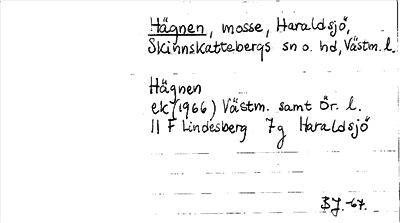 Hägnen, mosse, Haraldsjö,
Skinnskattebergs sn o. hd, Västm. l.
Hägnen
ek (1966) Västm. samt Ör. l.
11 F Lindesberg 7g Haraldsjö
BJ. -67.